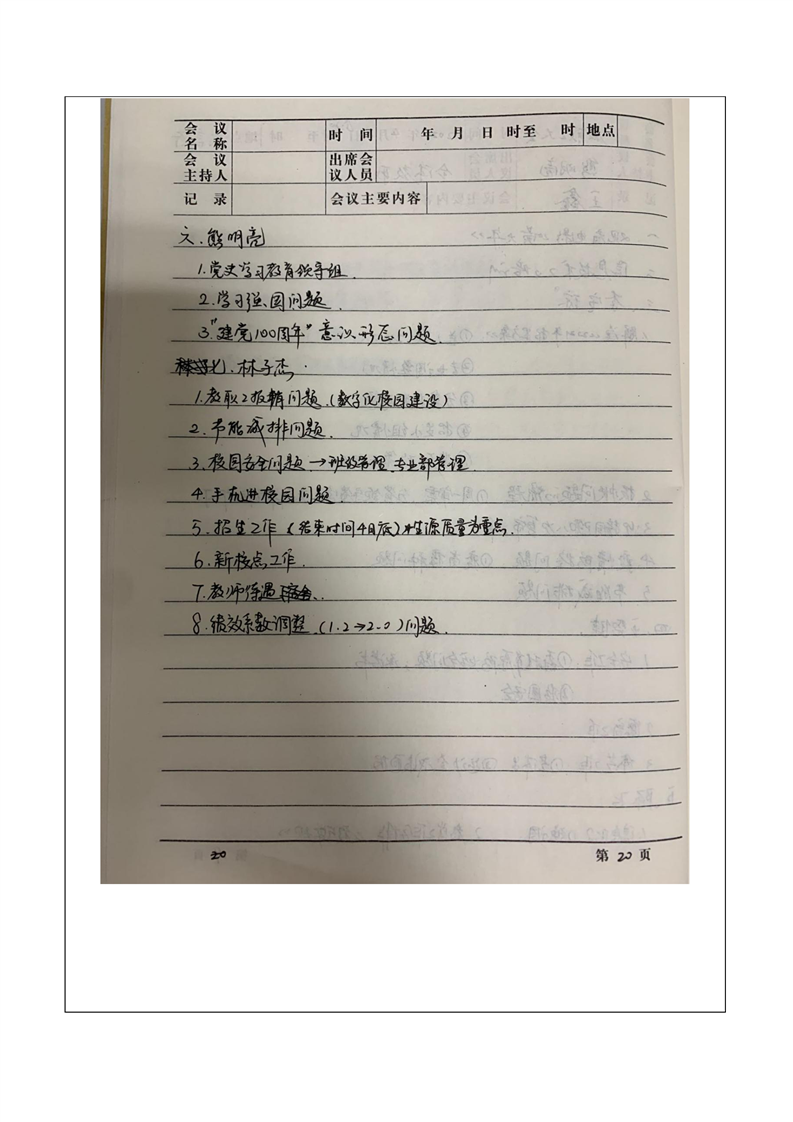 会议名称 时间 年 月 日 时至 时 地点
会议主持人 出席会议人员
记录 会议主要内容
六、熊明亮
1.党史学习教育领导组.
2.学习强国问题.
3."建党100周年"意识形态问题.
七、林子杰.
1.教职工报销问题.(数字化校园建设)
2.节能减排问题.
3.校园安全问题→班级管理.专业部管理
4.手机进校园问题.
5.招生工作(结束时间4月底)生源质量为重点.
6.新校点工作.
7.教师待遇
8.绩效系数调整.(1.2→2.0)问题.
20
第20页